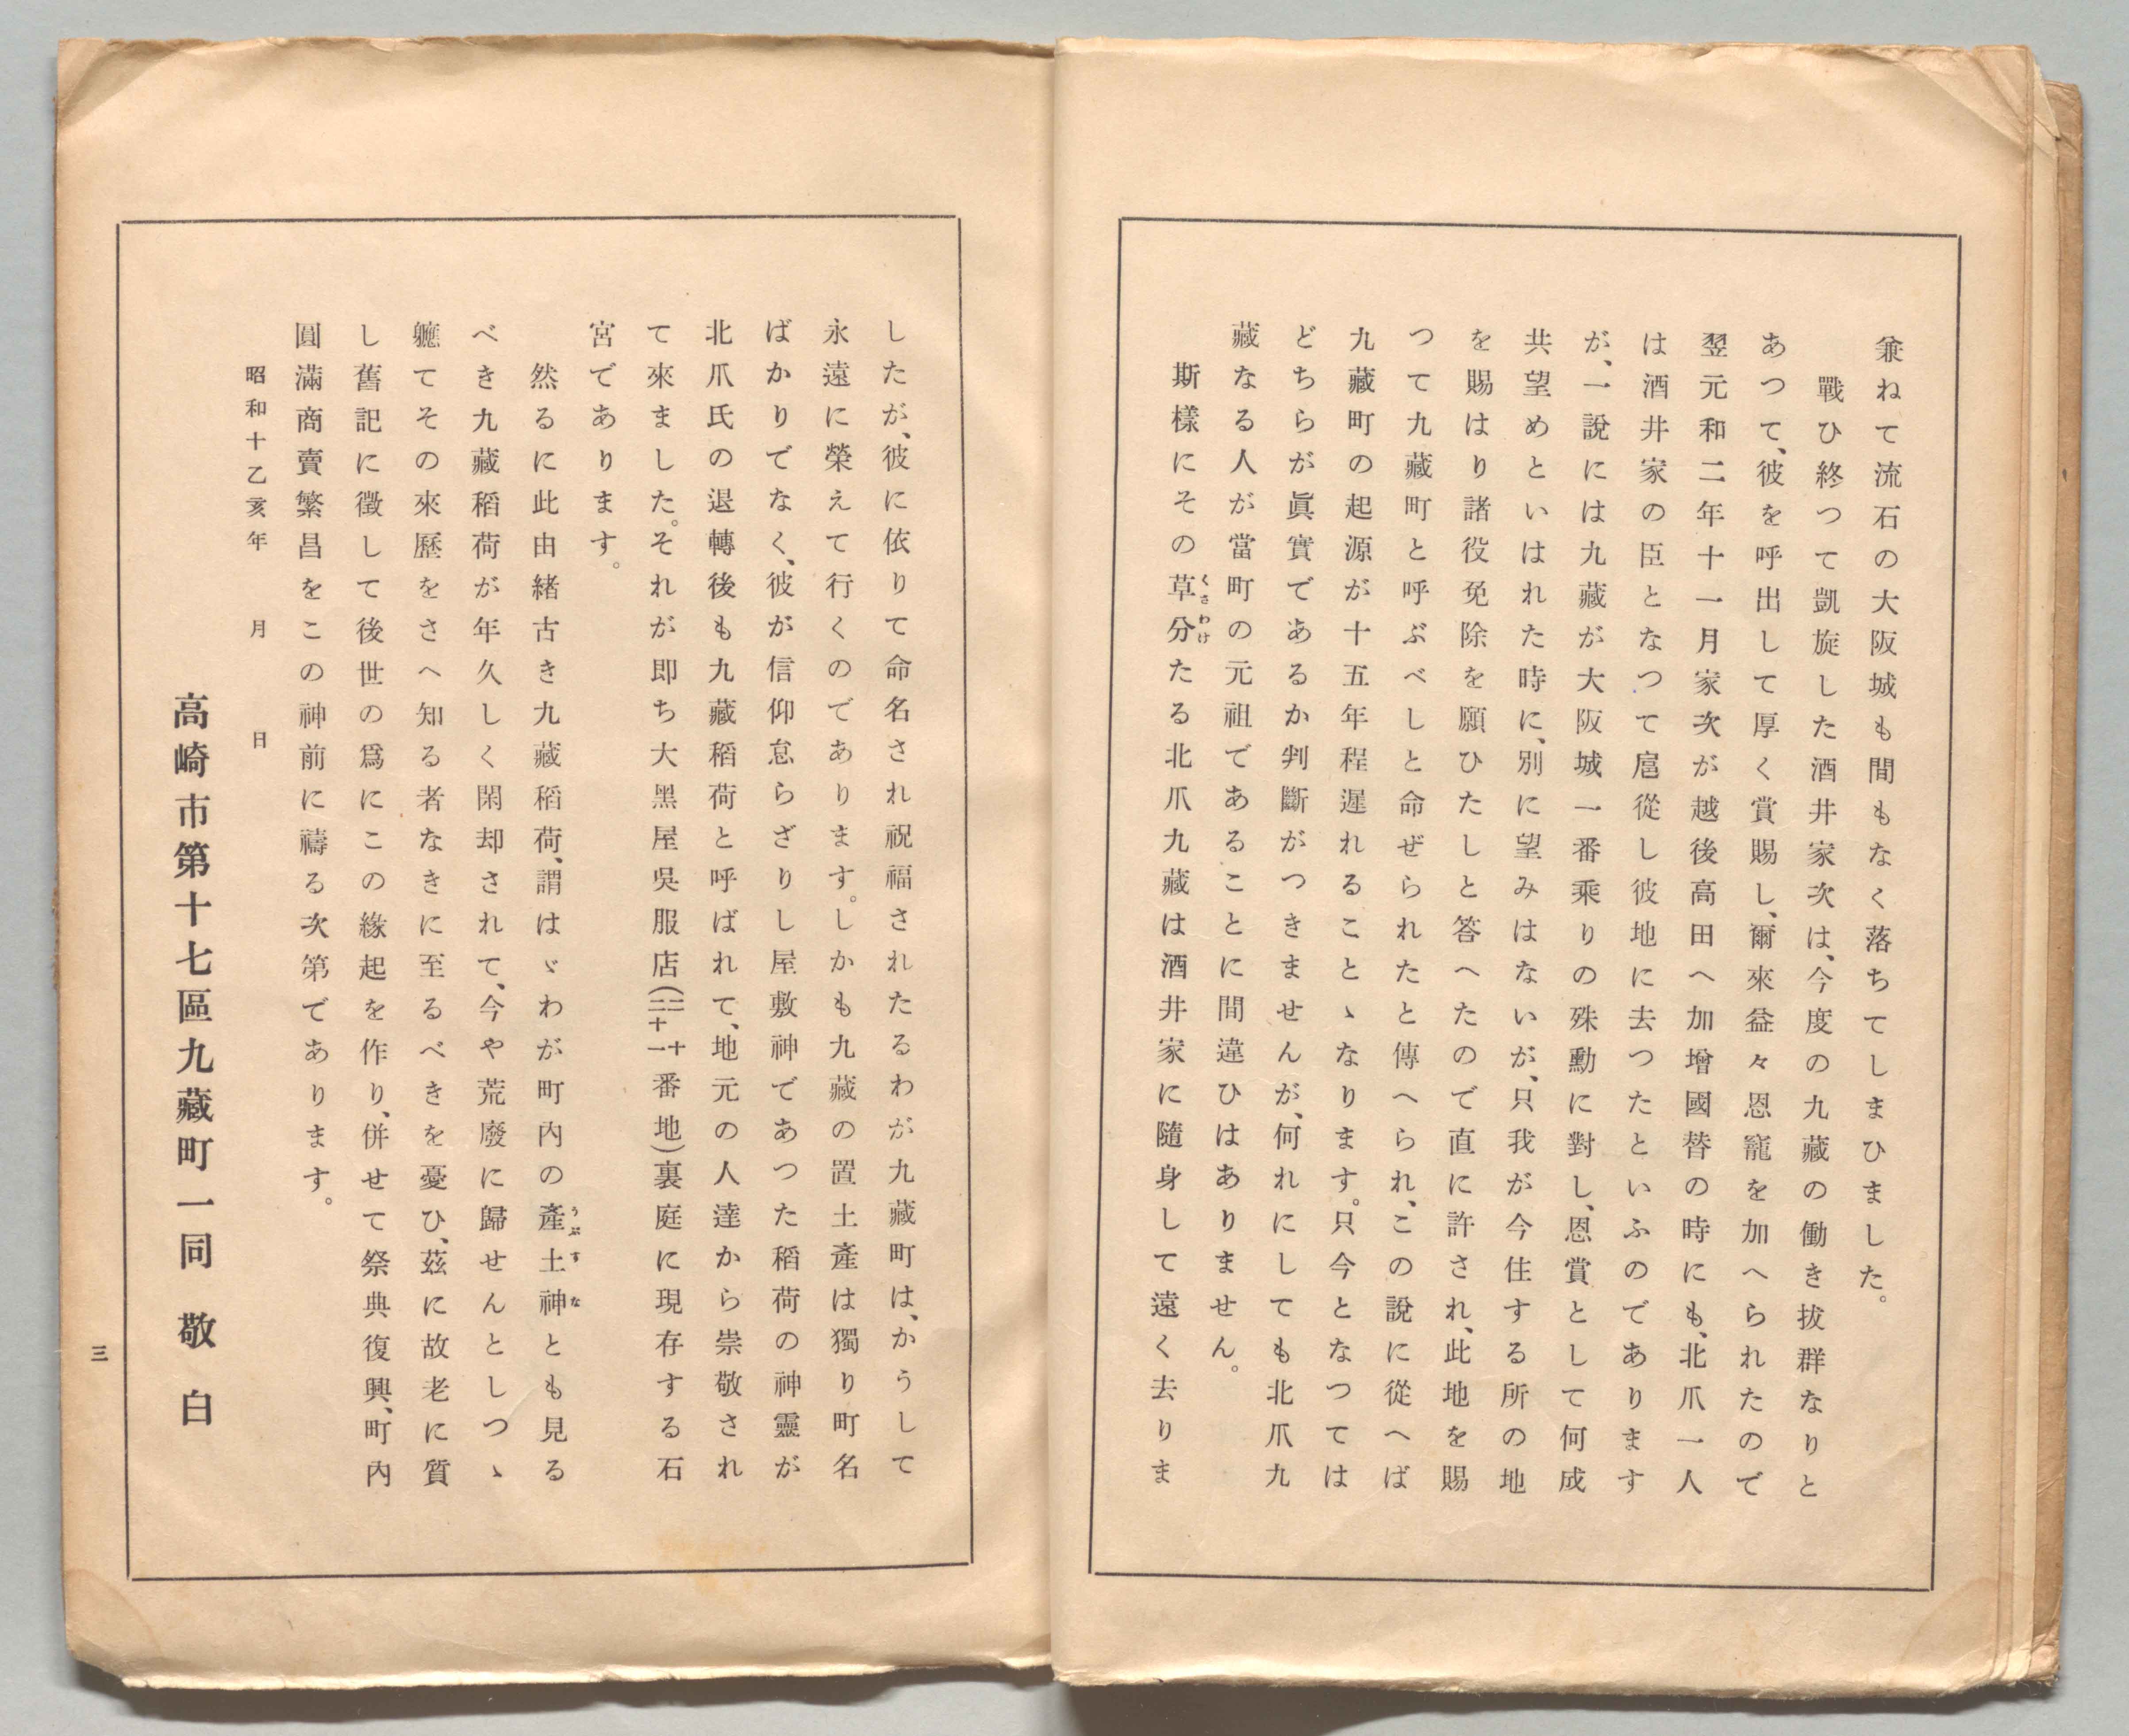 兼ねて流石の大阪城も間もなく落ちてしまひました。
戰ひ終つて凱旋した酒井家次は、今度の九藏の働き拔群なりと
あつて、彼を呼出して厚く賞賜し、爾來益々恩寵を加へられたので
翌元和二年十一月家次が越後高田へ加增國替の時にも、北爪一人
は酒井家の臣となつて扈從し彼地に去つたといふのであります
が、一說には九藏が大阪城一番乘りの殊勳に對し、恩賞として何成
共望めといはれた時に、別に望みはないが、只我が今住する所の地
を賜はり諸役免除を願ひたしと答へたので直に許され、此地を賜
つて九藏町と呼ぶべしと命ぜられたと傳へられ、この說に從へば
九藏町の起源が十五年程遲れることゝなります。只今となつては
どちらが眞實であるか判斷がつきませんが、何れにしても北爪九
藏なる人が當町の元祖であることに間違ひはありません。
斯樣にその草分くさわけたる北爪九藏は酒井家に隨身して遠く去りま
したが、彼に依りて命名され祝福されたるわが九藏町は、かうして
永遠に榮えて行くのであります。しかも九藏の置土產は獨り町名
ばかりでなく、彼が信仰怠らざりし屋敷神であつた稻荷の神靈が
北爪氏の退轉後も九藏稻荷と呼ばれて、地元の人達から崇敬され
て來ました。それが卽ち大黑屋吳服店(二十二十一番地)裏庭に現存する石
宮であります。
然るに此由緖古き九藏稻荷、謂はゞわが町內の產土神うぶすなとも見る
べき九藏稻荷が年久しく閑却されて、今や荒廢に歸せんとしつゝ
軈てその來歷をさへ知る者なきに至るべきを憂ひ、茲に故老に質
し舊記に徵して後世の爲にこの緣起を作り、併せて祭典復興、町內
圓滿商賣繁昌をこの神前に禱る次第であります。
昭和十乙亥年 月 日
高崎市第十七區九藏町一同 敬白
三